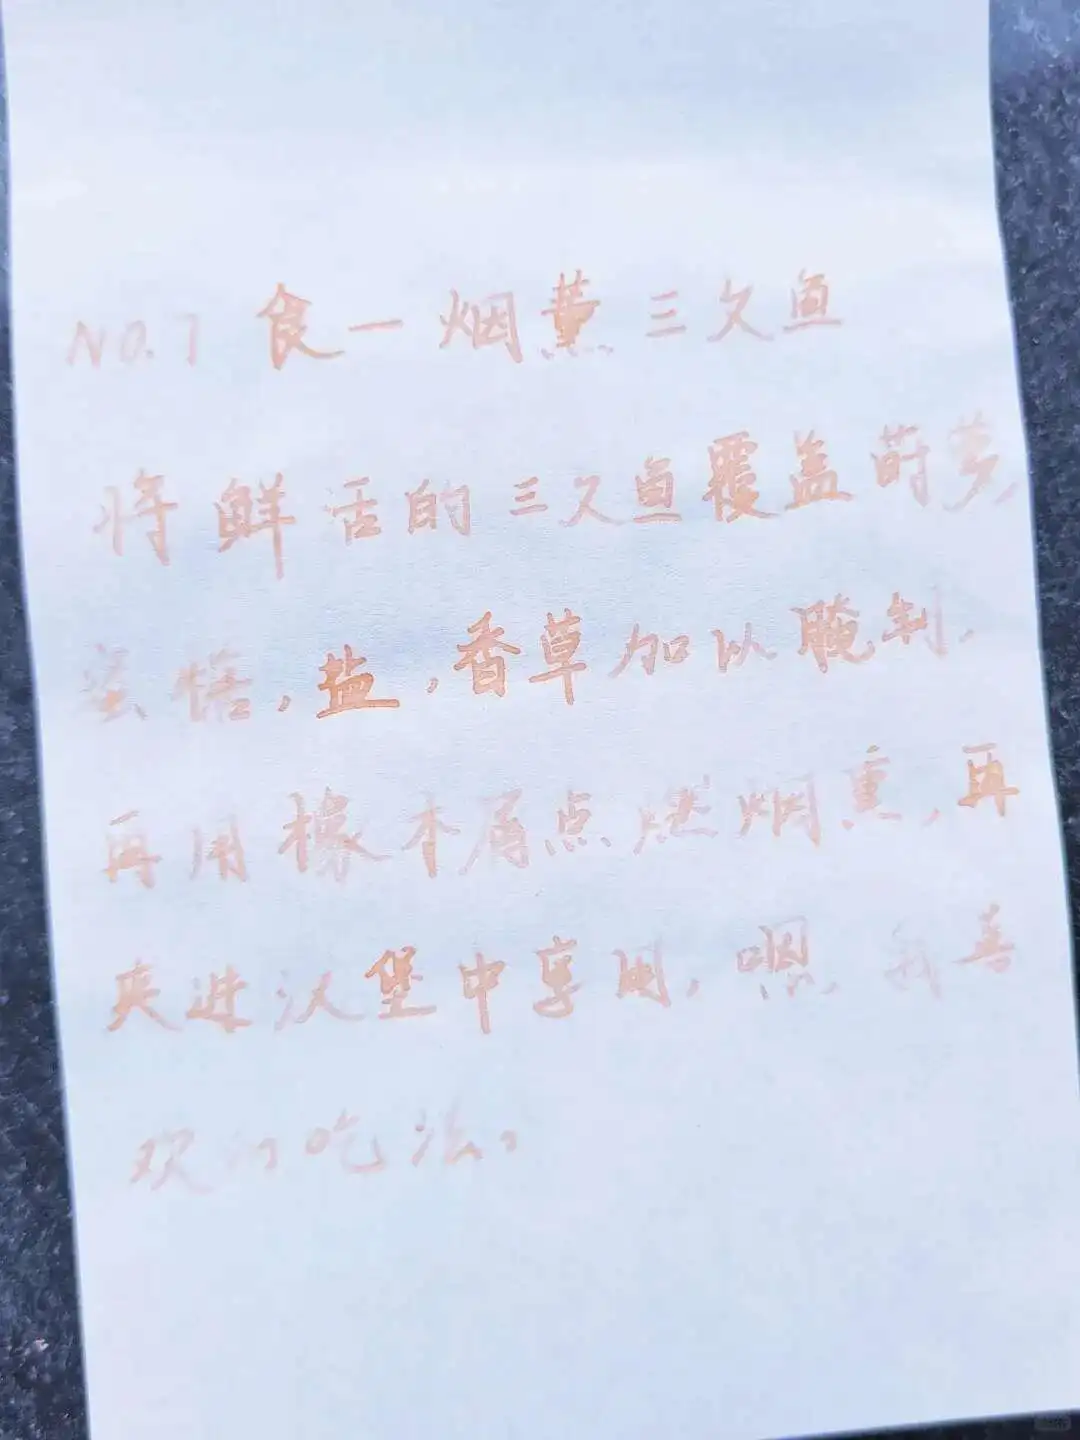 NO.7 食一烟薰三文鱼
将鲜活的三文鱼覆盖莳萝,
蜜糖,盐,香草加以腌制,
再用橡木屑点燃烟熏,再
夹进汉堡中享用,嗯,我喜
欢的吃法。